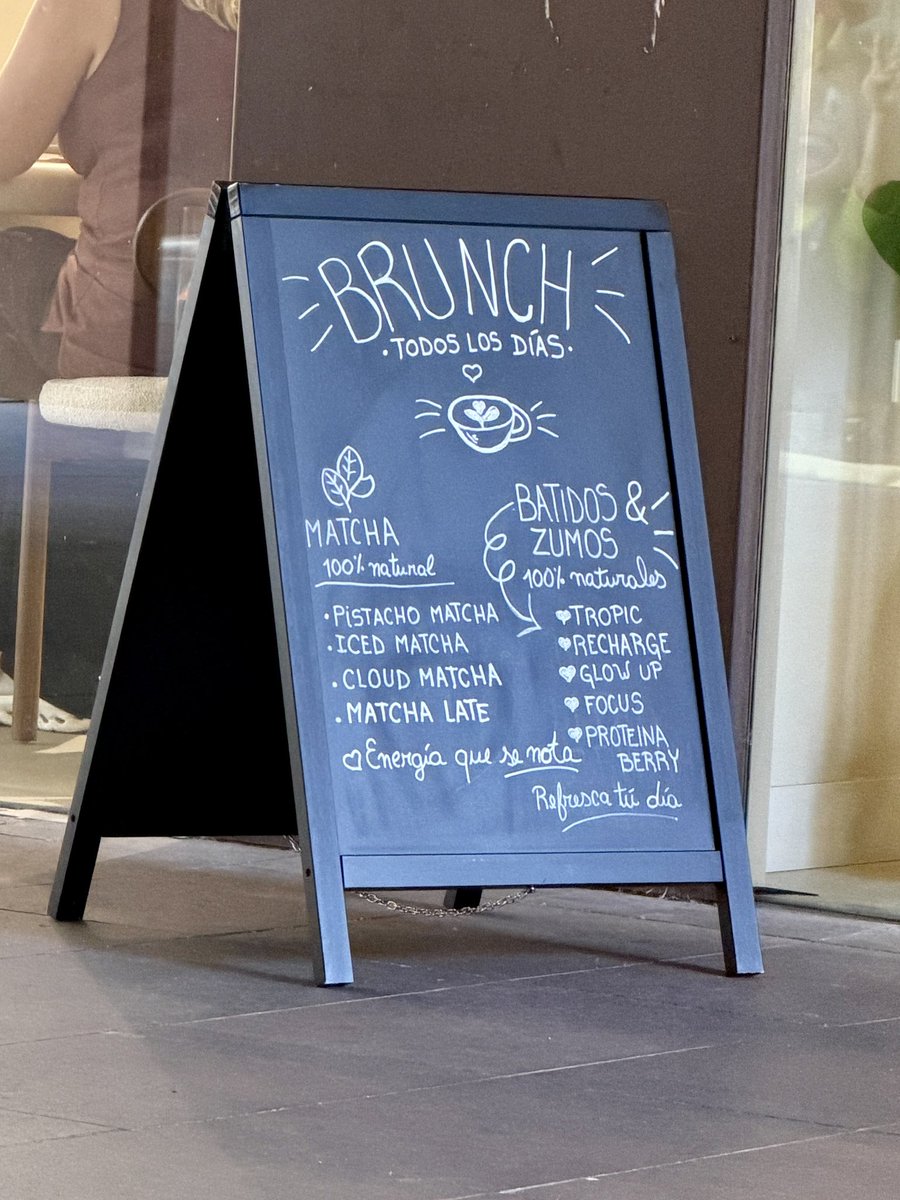 BRUNCH
·TODOS LOS DÍAS·
MATCHA
100% natural
·PISTACHO MATCHA
·ICED MATCHA
·CLOUD MATCHA
·MATCHA LATE
Energía que se nota
BATIDOS &
ZUMOS
100% naturales
TROPIC
RECHARGE
GLOW UP
FOCUS
PROTEINA
BERRY
Refresca tú día